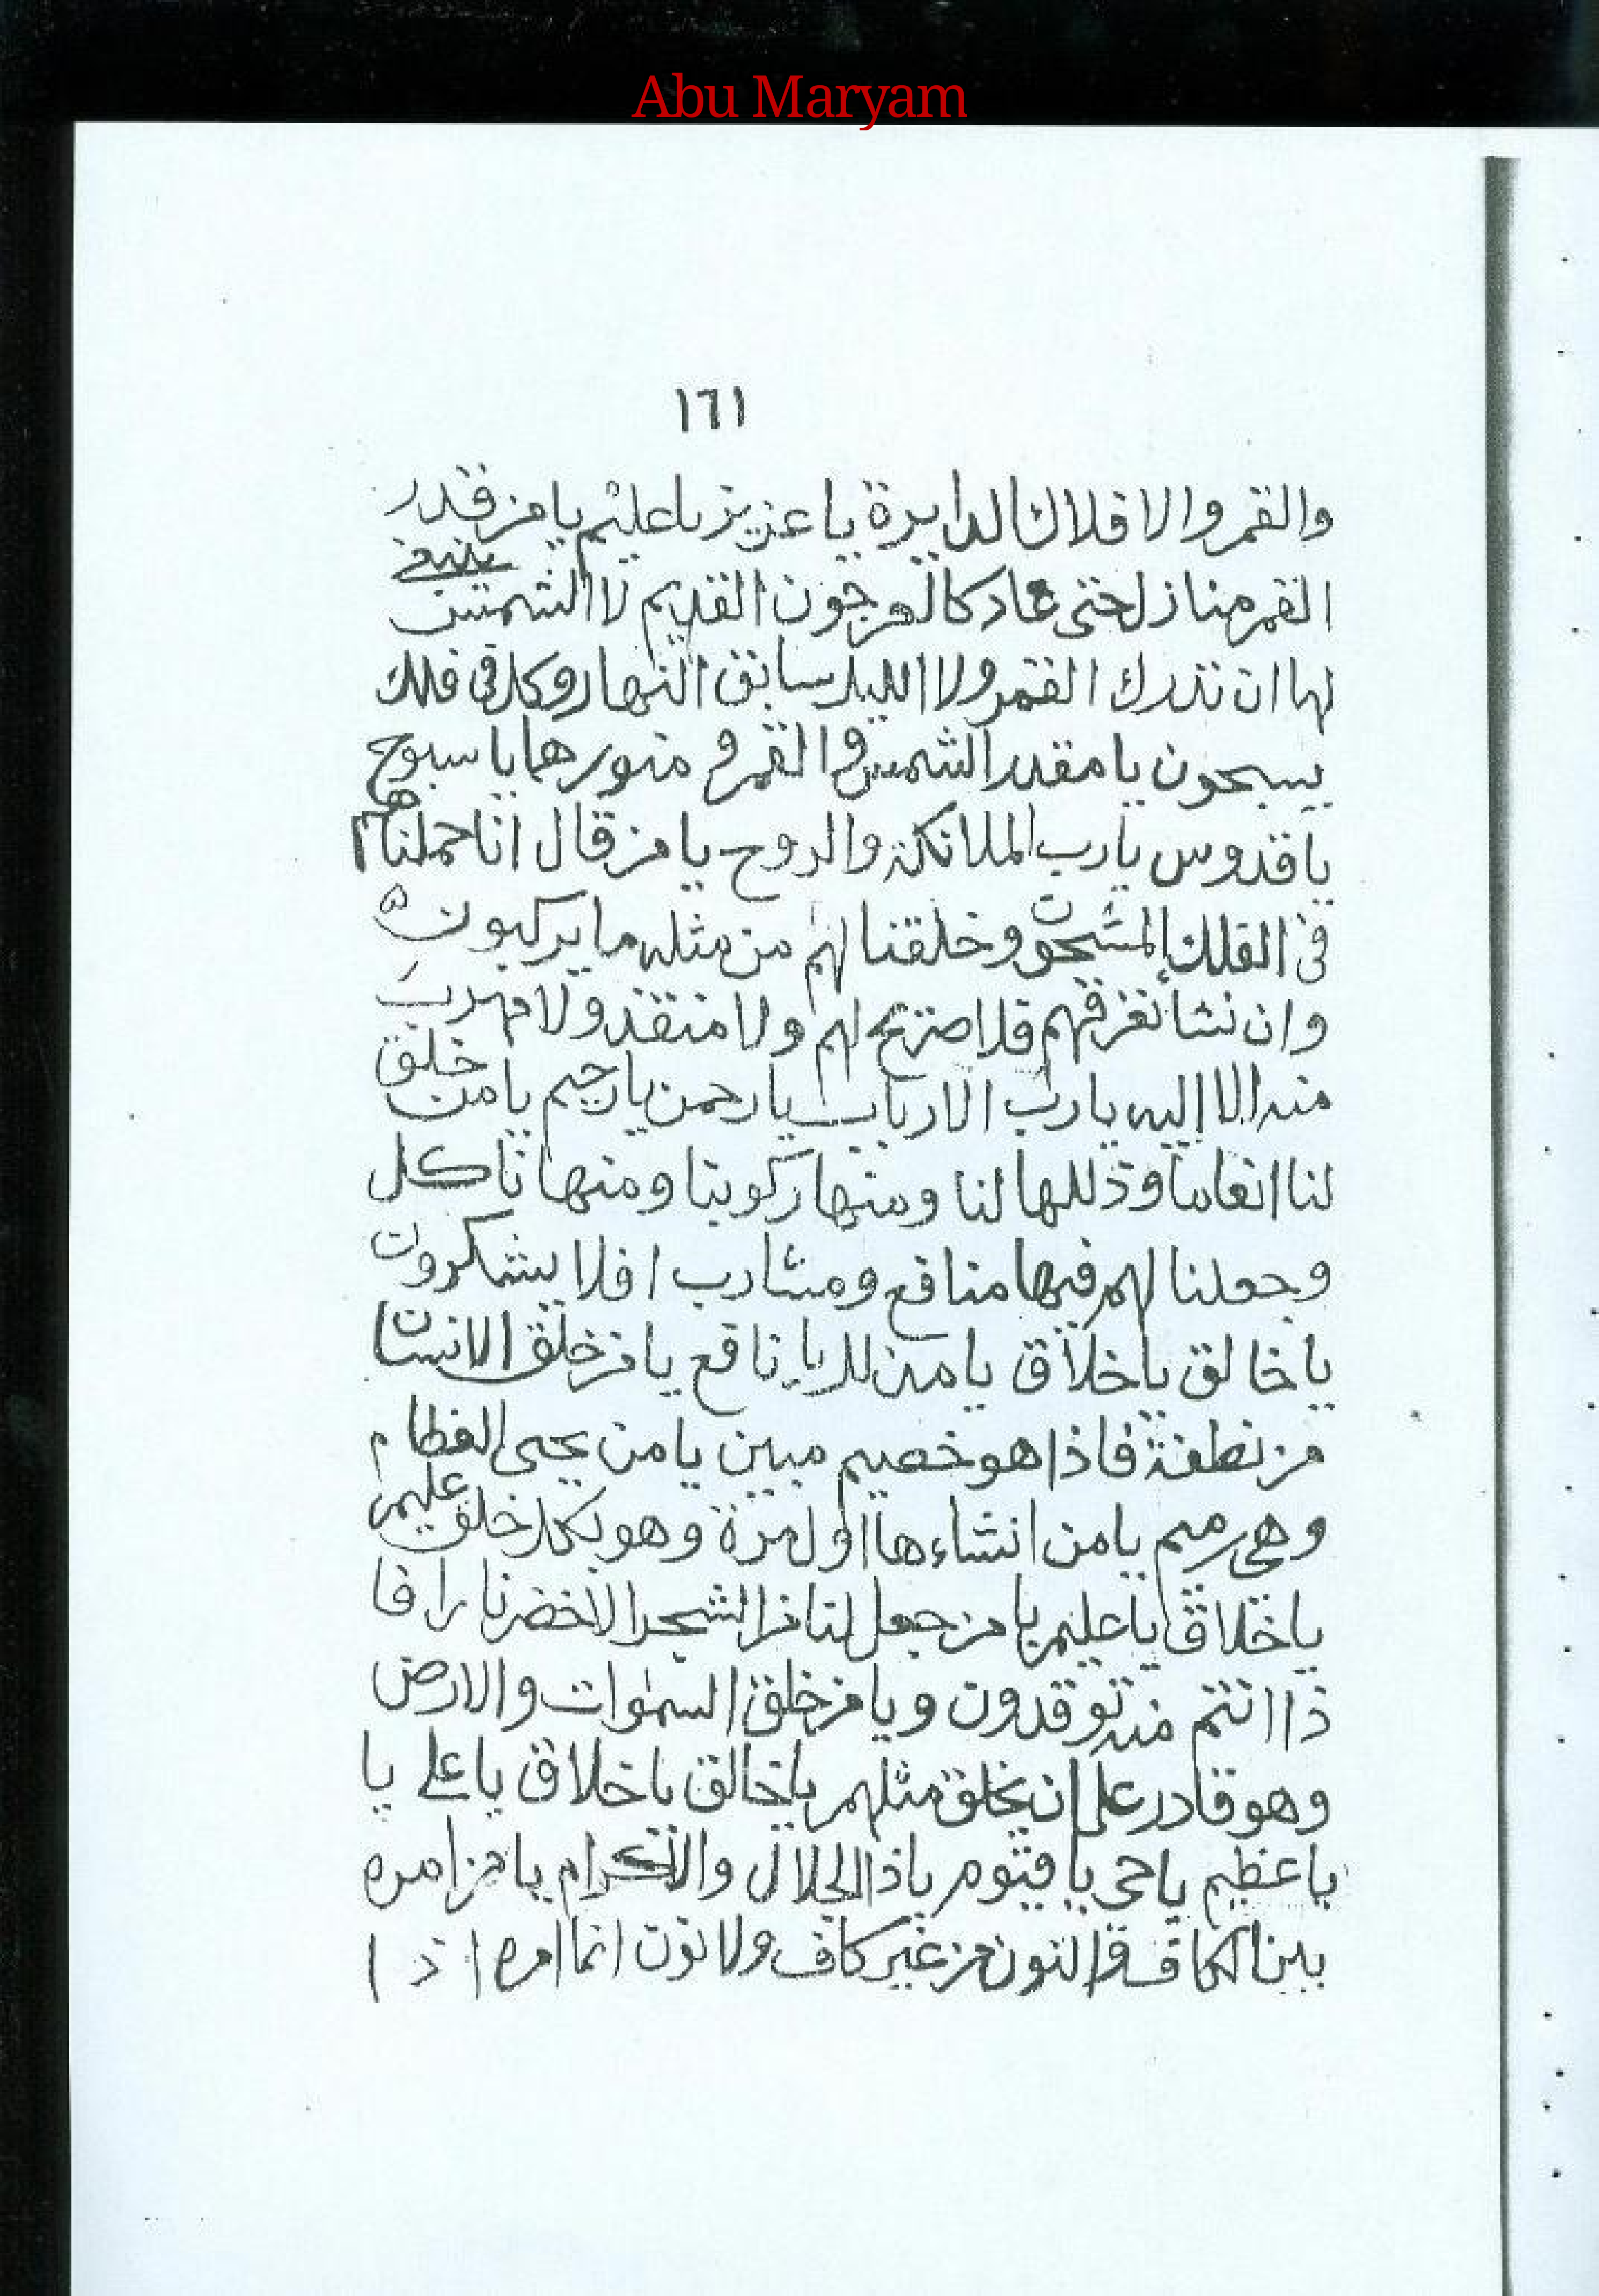 Abu Maryam
١٦١
والقمر والافلاك الدايرة يا عزيز يا عليم يا من قدر
القمر منازل حتى عاد كالعرجون القديم لا الشمس ينبغي
لها ان تدرك القمر ولا الليل سابق النهار وكل في فلك
يسبحون يا مقدر الشمس والقمر و منورهما يا سبوح
يا قدوس يا رب الملائكة والروح يا من قال انا حملناهم
في الفلك المشحون وخلقنا لهم من مثله ما يركبون
وان نشا نغرقهم فلا صريخ لهم ولا منقذ ولا مهرب
منه الا إليه يا رب الارباب يا رحمن يا رحيم يا من خلق
لنا انعاما وذللها لنا ومنها ركوبنا ومنها ناكل
وجعلنا لهم فيها منافع ومشارب افلا يشكرون
يا خالق يا خلاق يا نافع يا من خلق الانسان
من نطفة فاذا هو خصيم مبين يا من يحيى العظام
وهي رميم يا من انشاءها اول مرة وهو بكل خلق عليم
يا خلاق يا عليم يا من جعل لنا من الشجر الاخضر نارا فا
ذا انتم منه توقدون ويا من خلق السموات والارض
وهو قادر على ان يخلق مثلهم يا خالق يا خلاق يا على يا
يا عظيم يا حى يا قيوم يا ذا الجلال والاكرام يا من امره
بين الكاف والنون من غير كاف ولا نون انما امره اذا